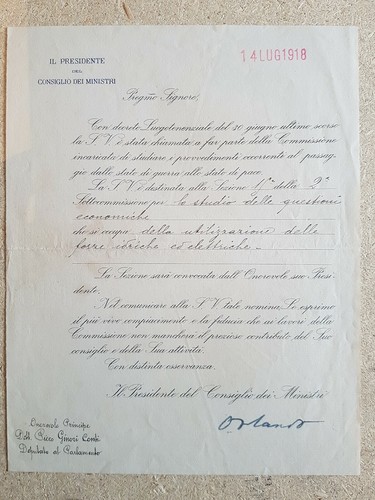 IL PRESIDENTE
DEL
CONSIGLIO DEI MINISTRI
14 LUG 1918
Pregmo Signore,
Con decreto Luogotenenziale del 30 giugno ultimo scorso
la S. V. è stata chiamata a far parte della Commissione
incaricata di studiare i provvedimenti occorrenti al passag-
gio dallo stato di guerra allo stato di pace.
La S. V. è destinata alla Sezione 11ª della 2ª
Sottocommissione per lo studio delle questioni
economiche
che si occupa della utilizzazione delle
forze idriche ed elettriche.
La Sezione sarà convocata dall'Onorevole suo Presi-
dente.
Nel comunicare alla S. V. tale nomina, Le esprimo
il più vivo compiacimento e la fiducia che ai lavori della
Commissione non mancherà il prezioso contributo del Suo
consiglio e della Sua attività.
Con distinta osservanza.
Il Presidente del Consiglio dei Ministri
Orlando
Onorevole Principe
Dott. Piero Ginori Conti
Deputato al Parlamento